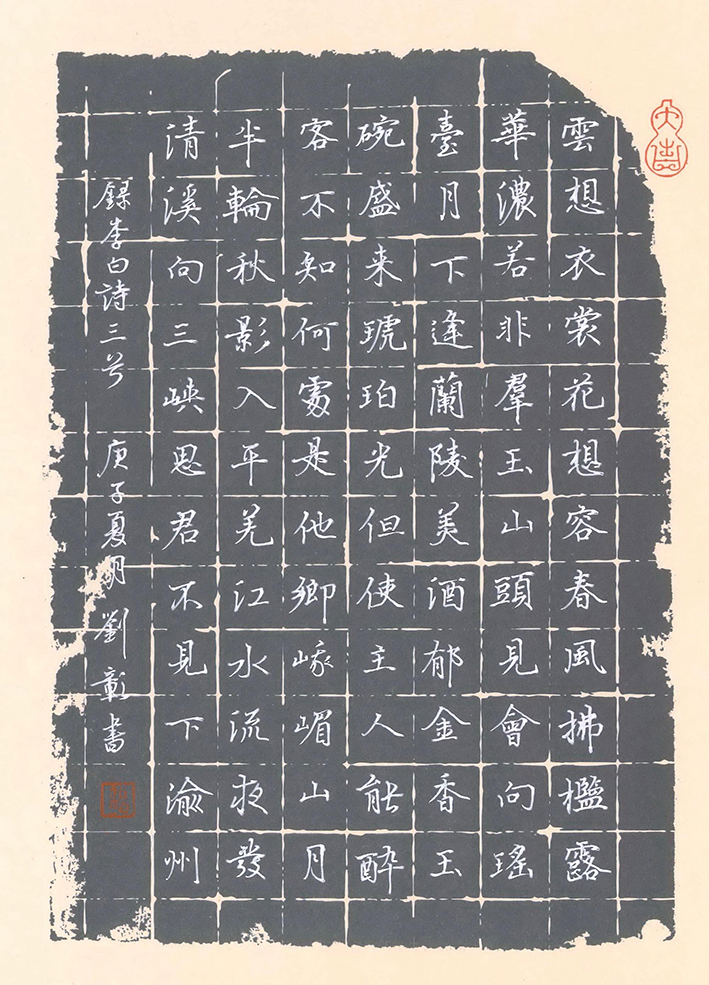 雲想衣裳花想容春風拂檻露
華濃若非羣玉山頭見會向瑤
臺月下逢蘭陵美酒郁金香玉
碗盛来琥珀光但使主人能醉
客不知何處是他鄉峨嵋山月
半輪秋影入平羌江水流夜發
清溪向三峽思君不見下渝州
錄李白詩三首 庚子夏月劉彰書
大吉